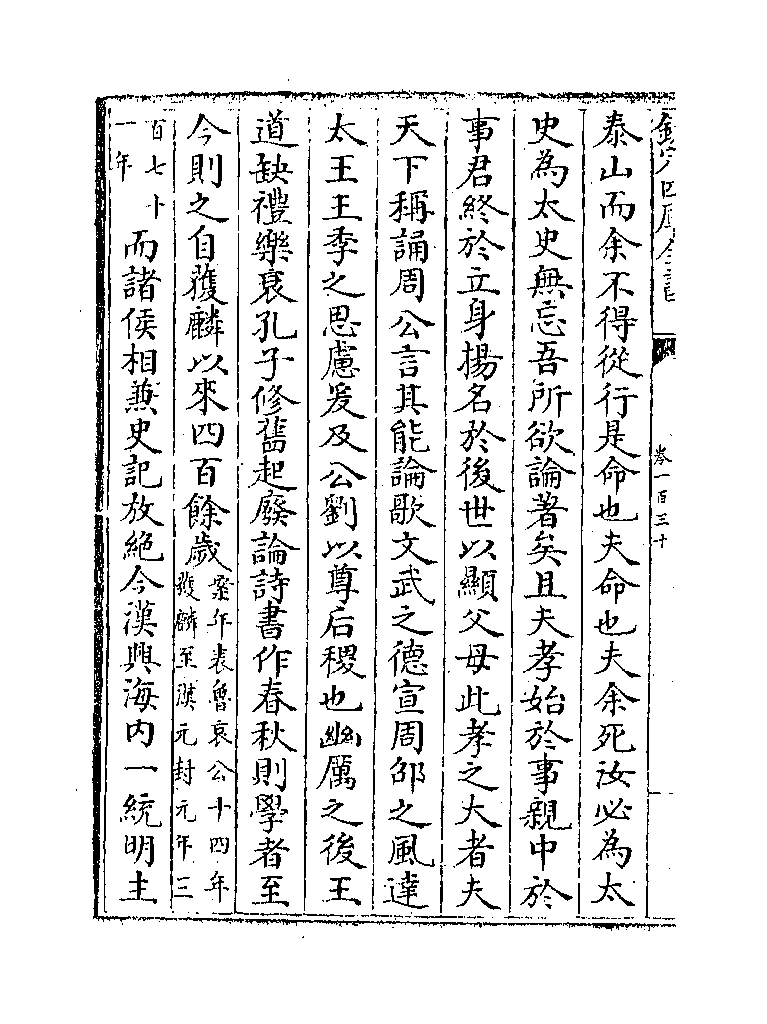 欽定四庫全書
卷一百三十
泰山而余不得從行是命也夫命也夫余死汝必為太
史為太史無忘吾所欲論著矣且夫孝始於事親中於
事君終於立身揚名於後世以顯父母此孝之大者夫
天下稱誦周公言其能論歌文武之德宣周邵之風達
太王王季之思慮爰及公劉以尊后稷也幽厲之後王
道缺禮樂衰孔子修舊起廢論詩書作春秋則學者至
今則之自獲麟以來四百餘歲案年表魯哀公十四年獲麟至漢元封元年三
百七十一年而諸侯相兼史記放絕今漢興海內一統明主